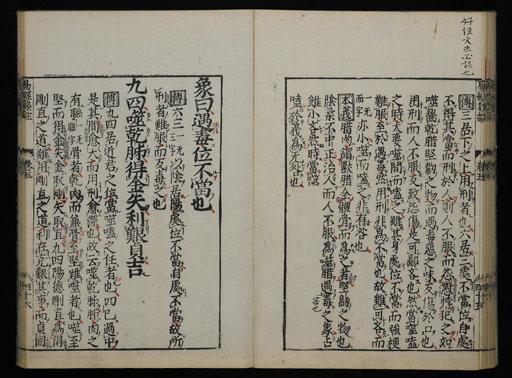 傳三居下之上用刑者也六居三處不當位自處
不得其當而刑於人則人不服而怨懟悖犯之如
噬齧乾腊堅韌之物而遇毒惡之味反傷於口也
用刑而人不服反致怨傷是可鄙吝也然當噬嗑
之時大要噬間而嗑之雖其身處位不當而強梗
難服至於遇毒然用刑非爲不當也故雖可吝而
一无而字亦小噬而嗑之非有咎也
本義腊肉謂獸腊全體骨而爲之者堅韌之物也
陰柔不中正治人而人不服爲噬腊遇毒之象占
雖小吝然時當噬
嗑於義爲无咎也
象曰遇毒位不當也
傳六三以陰居陽處位不當自處不當故所
刑者難服而反毒之也
九四噬乾胏得金矢利艱貞吉
傳九四居近君之位當噬嗑之任者也四已過中
是其間愈大而用刑愈深也故云噬乾胏胏肉之
有聯骨者乾肉而兼骨至堅難噬者也噬至
堅而得金矢金取剛矢取直九四陽德剛直爲得
剛直之道雖用剛直之道利在克艱其事而貞固